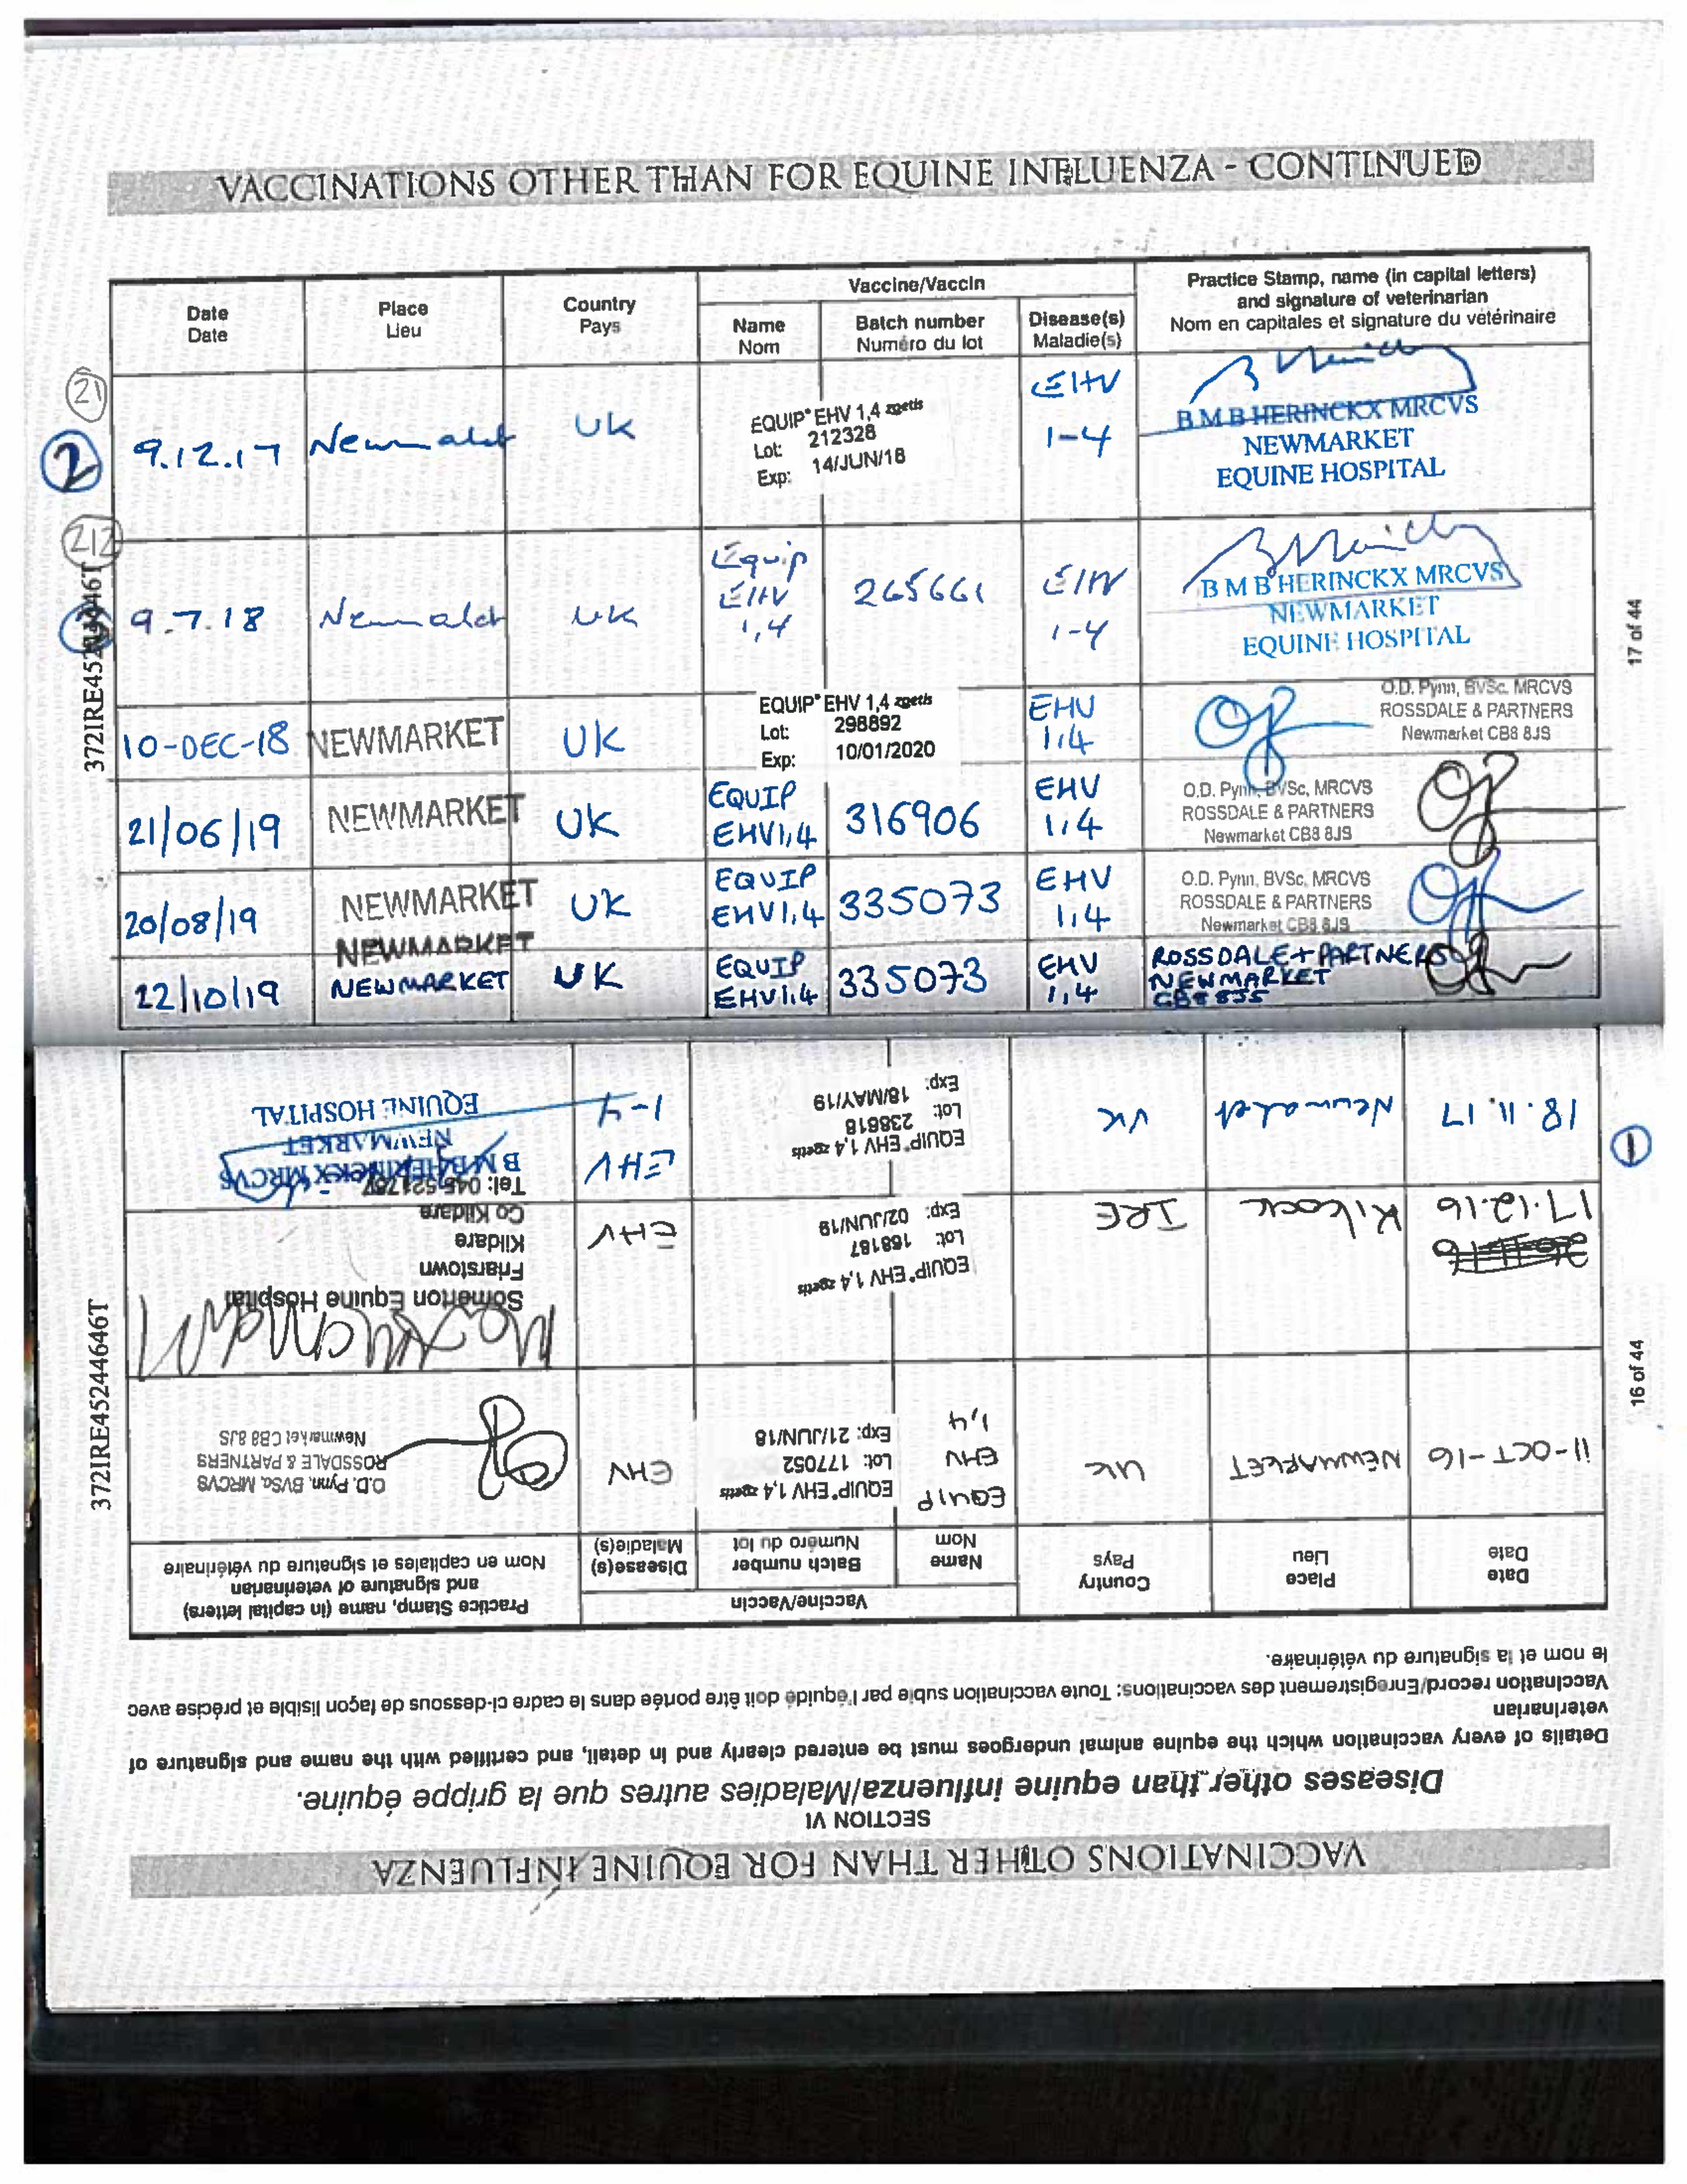 VACCINATIONS OTHER THAN FOR EQUINE INFLUENZA - CONTINUED
Date
Date
Place
Lieu
Country
Pays
Vaccine/Vaccin
Name
Nom
Batch number
Numéro du lot
Disease(s)
Maladie(s)
Practice Stamp, name (in capital letters)
and signature of veterinarian
Nom en capitales et signature du vétérinaire
21
2
9.12.17
Newmarket
UK
EQUIP EHV 1,4 zoetis
Lot: 212328
Exp: 14/JUN/18
EHV
1-4
B M B HERINCKX MRCVS
NEWMARKET
EQUINE HOSPITAL
212
3
9.7.18
Newmarket
UK
Equip
EHV
1,4
265661
EHV
1-4
B M B HERINCKX MRCVS
NEWMARKET
EQUINE HOSPITAL
10-DEC-18
NEWMARKET
UK
EQUIP EHV 1,4 zoetis
Lot: 298892
Exp: 10/01/2020
EHV
1,4
O.D. Pynn, BVSc, MRCVS
ROSSDALE & PARTNERS
Newmarket CB8 8JS
21/06/19
NEWMARKET
UK
EQUIP
EHV1,4
316906
EHV
1,4
O.D. Pynn, BVSc, MRCVS
ROSSDALE & PARTNERS
Newmarket CB8 8JS
20/08/19
NEWMARKET
UK
EQUIP
EHV1,4
335073
EHV
1,4
O.D. Pynn, BVSc, MRCVS
ROSSDALE & PARTNERS
Newmarket CB8 8JS
NEWMARKET
22/10/19
NEWMARKET
UK
EQUIP
EHV1,4
335073
EHV
1,4
ROSSDALE + PARTNERS
NEWMARKET
17 of 44
VACCINATIONS OTHER THAN FOR EQUINE INFLUENZA
SECTION VI
Diseases other than equine influenza/Maladies autres que la grippe équine.
Details of every vaccination which the equine animal undergoes must be entered clearly and in detail, and certified with the name and signature of
veterinarian
Vaccination record/Enregistrement des vaccinations: Toute vaccination subie par l'équidé doit être portée dans le cadre ci-dessous de façon lisible et précise avec
le nom et la signature du vétérinaire.
Date
Date
Place
Lieu
Country
Pays
Vaccine/Vaccin
Name
Nom
Batch number
Numéro du lot
Disease(s)
Maladie(s)
Practice Stamp, name (in capital letters)
and signature of veterinarian
Nom en capitales et signature du vétérinaire
11-OCT-16
NEWMARKET
UK
EQUIP
EHV
1,4
EQUIP EHV 1,4 zoetis
Lot: 177052
Exp: 21/JUN/18
EHV
O.D. Pynn, BVSc, MRCVS
ROSSDALE & PARTNERS
Newmarket CB8 8JS
17.12.16
Kilcock
IRE
EQUIP EHV 1,4 zoetis
Lot: 168187
Exp: 02/JUN/19
EHV
Somerton Equine Hospital
Friarstown
Kildare
Co Kildare
Tel: 045 521767
1
18.11.17
Newmarket
UK
EQUIP EHV 1,4 zoetis
Lot: 238618
Exp: 18/MAY/19
EHV
1-4
B M B HERINCKX MRCVS
NEWMARKET
EQUINE HOSPITAL
372IRE45244646T
16 of 44